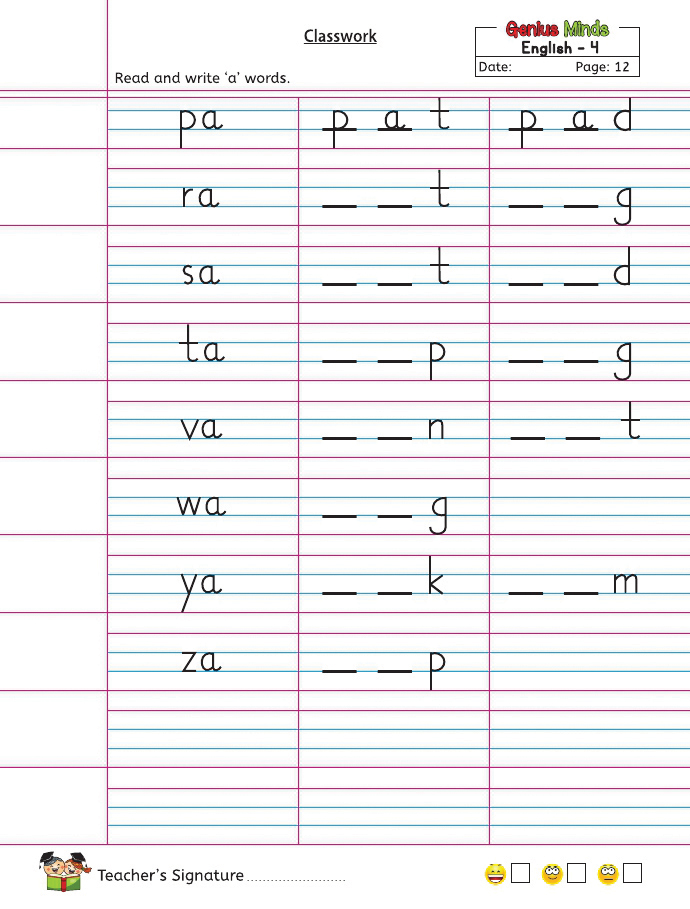 Classwork
Genius Minds
English - 4
Date: Page: 12
Read and write ‘a’ words.
pa p a t p a d
ra _ _ t _ _ g
sa _ _ t _ _ d
ta _ _ p _ _ g
va _ _ n _ _ t
wa _ _ g
ya _ _ k _ _ m
za _ _ p
Teacher’s Signature ........................